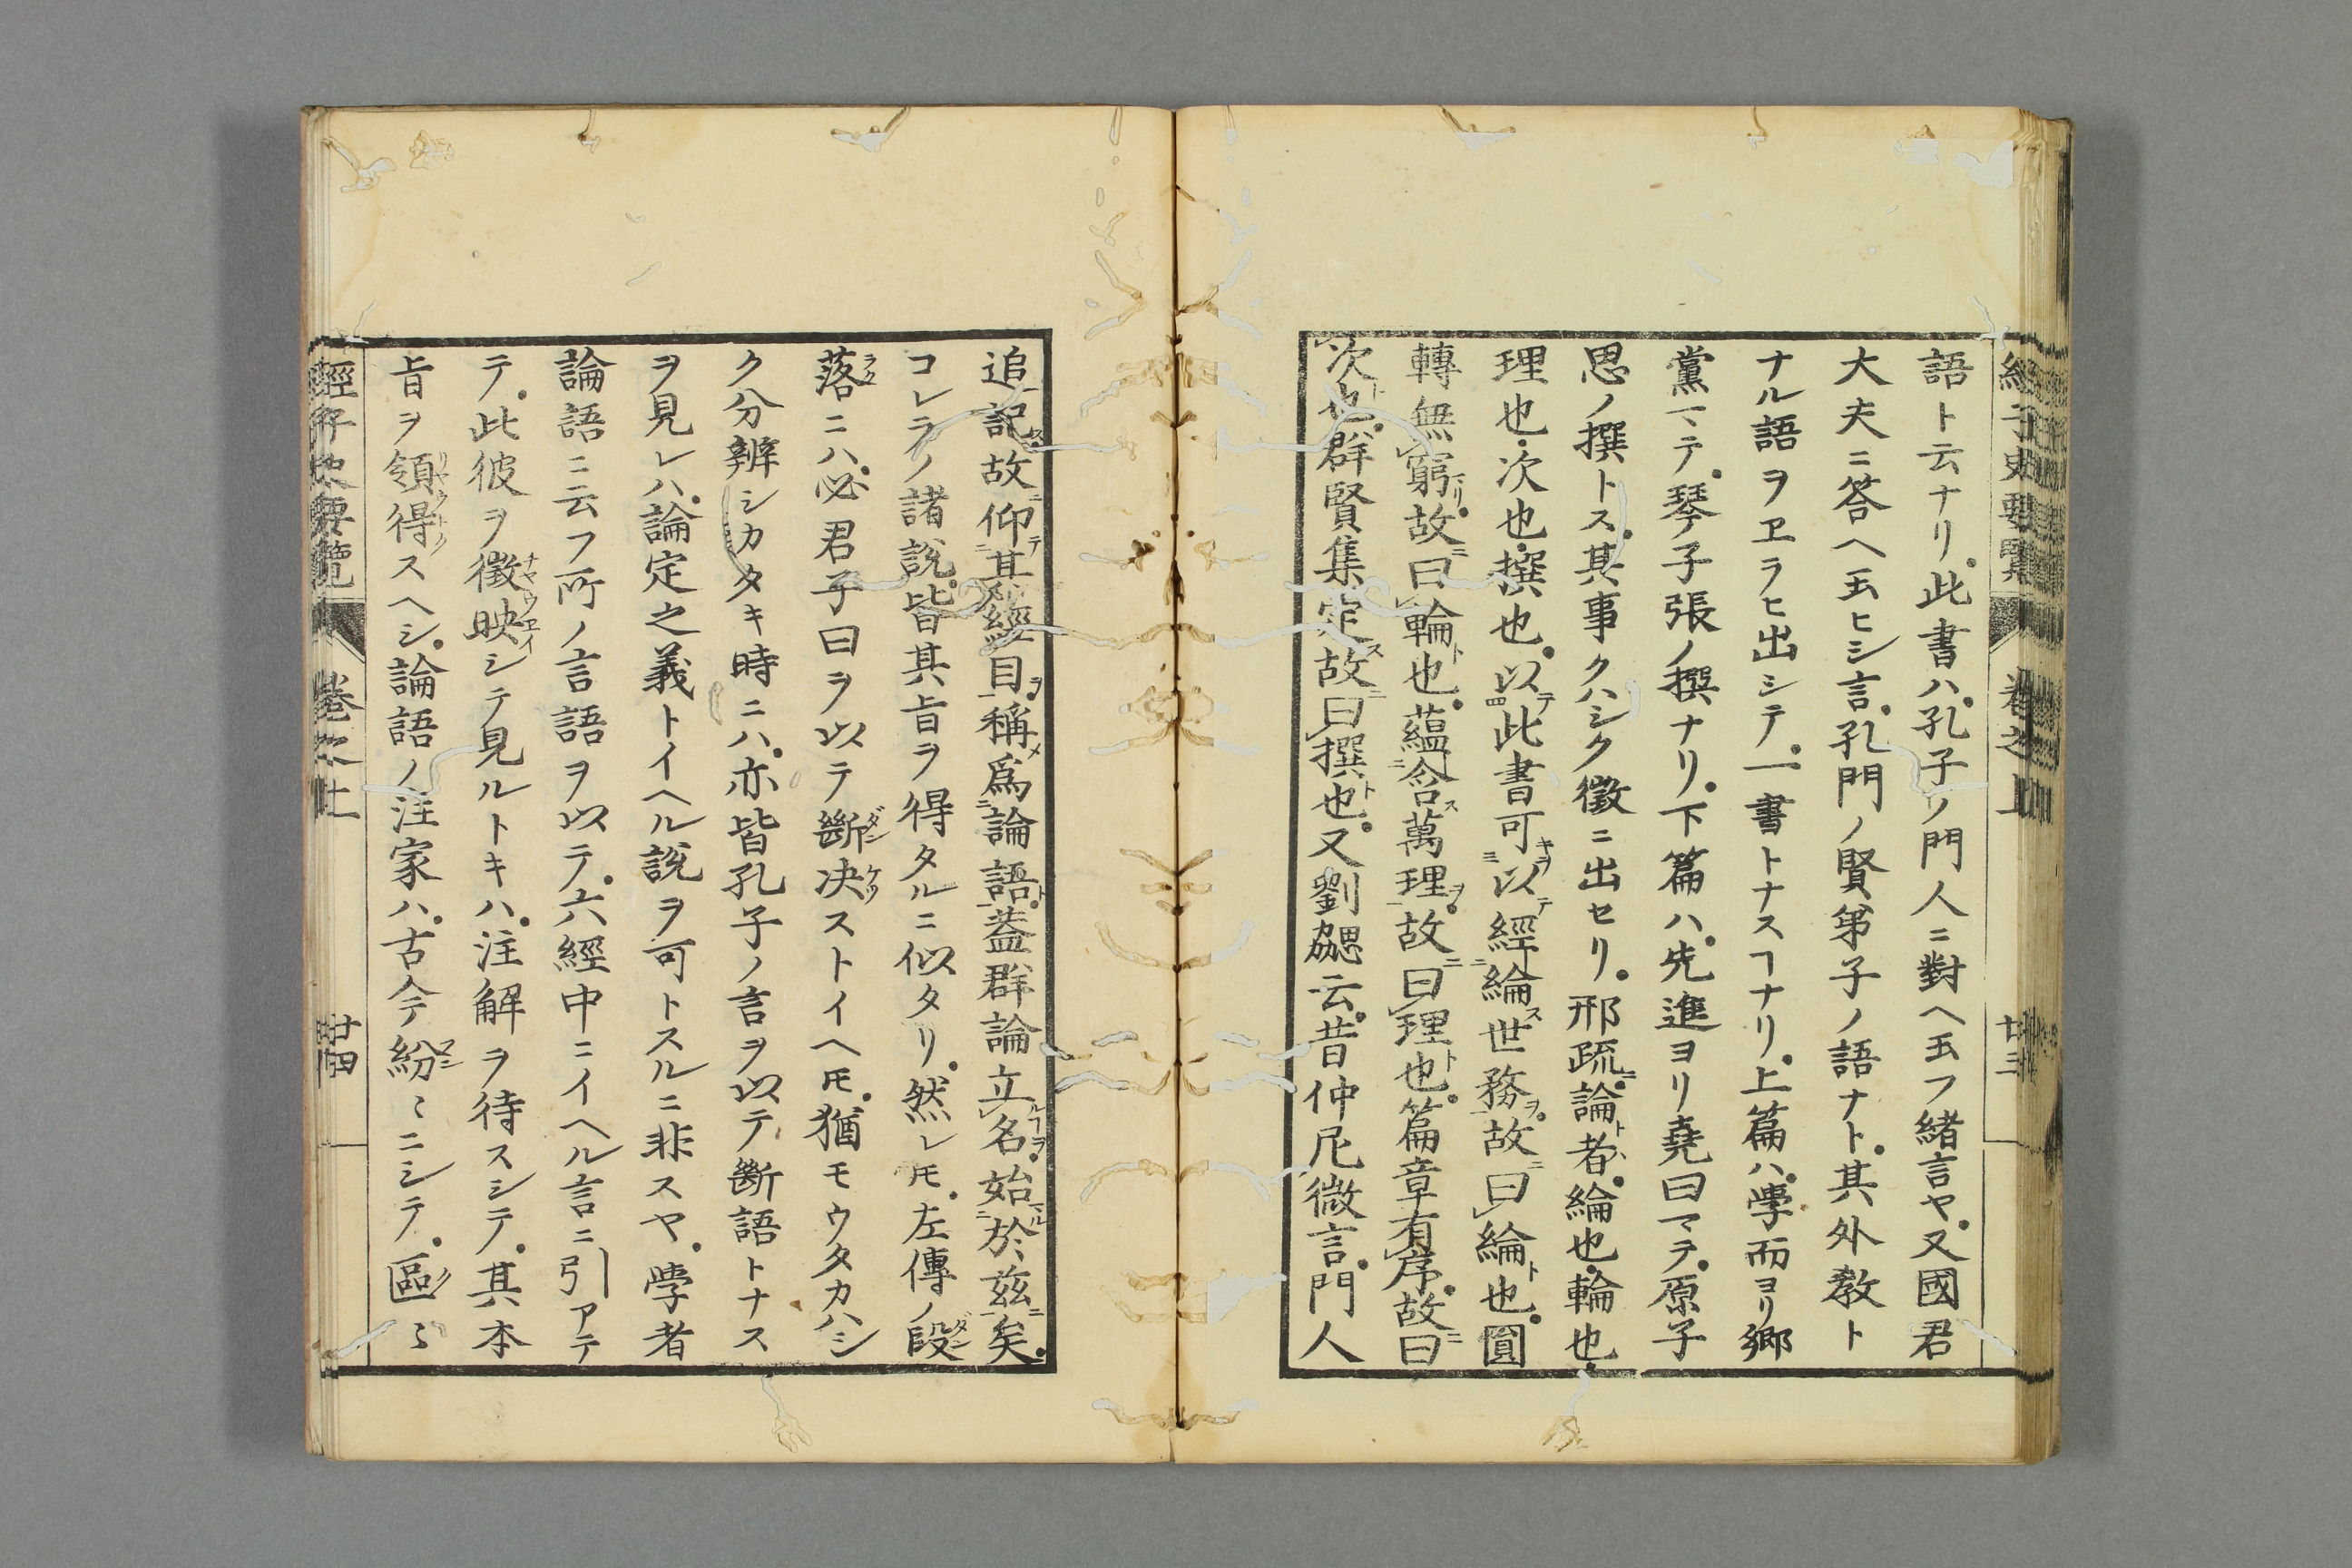 經子史要覽 卷之上 廿三
語ト云ナリ。此書ハ。孔子ノ門人ニ對ヘ玉フ緒言ヤ。又國君
大夫ニ答ヘ玉ヒシ言。孔門ノ賢弟子ノ語ナト。其外教ト
ナル語ヲヱラヒ出シテ。一書トナスヿナリ。上篇ハ。學而ヨリ鄉
黨マテ。琴子張ノ撰ナリ。下篇ハ。先進ヨリ堯曰マテ。原子
思ノ撰トス。其事クハシク徵ニ出セリ。邢疏論者。綸也。輪也。
理也。次也。撰也。以此書可以經綸世務。故曰綸也。圓
轉無窮。故曰輪也。蘊含萬理。故曰理也。篇章有序。故曰
次也。群賢集定。故曰撰也。又劉勰云。昔仲尼微言。門人
追記。故仰其經目。稱爲論語。蓋群論立名。始於茲矣。
コレラノ諸說。皆其旨ヲ得タルニ似タリ。然レ𪜈。左傳ノ段
落ニハ。必君子曰ヲ以テ斷决ストイヘ𪜈。猶モウタカハシ
ク分辨シカタキ時ニハ。亦皆孔子ノ言ヲ以テ斷語トナス
ヲ見レハ。論定之義トイヘル說ヲ可トスルニ非スヤ。學者
論語ニ云フ所ノ言語ヲ以テ。六經中ニイヘル言ニ引アテ
テ。此彼ヲ徵映シテ見ルトキハ。注解ヲ待スシテ。其本
旨ヲ領得スヘシ。論語ノ注家ハ。古今紛〻ニシテ。區〻
經子史要覽 卷之上 廿四